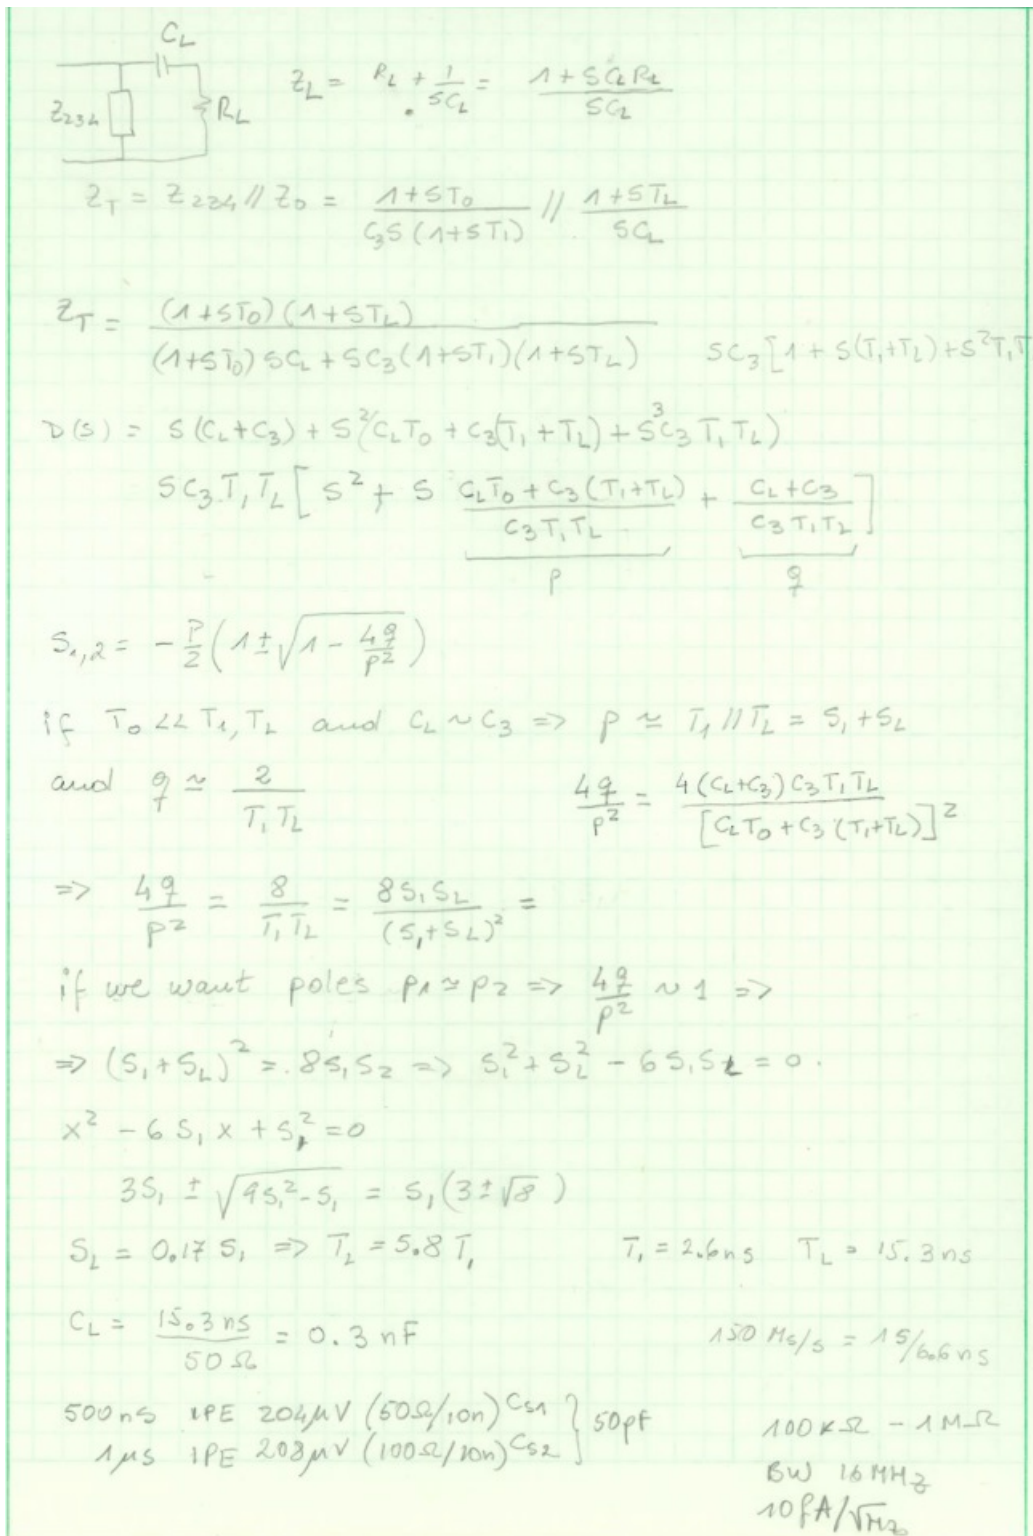 C_L
Z_234
R_L
Z_L = R_L + 1/(SC_L) = (1+SC_LR_L)/(SC_L)
Z_T = Z_234 // Z_0 = (1+ST_0)/(C_3S(1+ST_1)) // (1+ST_L)/(SC_L)
Z_T = ((1+ST_0)(1+ST_L))/((1+ST_0)SC_L + SC_3(1+ST_1)(1+ST_L)) SC_3[1 + S(T_1+T_L)+S²T_1T
D(S) = S(C_L+C_3) + S²(C_LT_0 + C_3(T_1+T_L) + S³C_3T_1T_L)
SC_3T_1T_L [ S² + S (C_LT_0 + C_3(T_1+T_L))/(C_3T_1T_L) + (C_L+C_3)/(C_3T_1T_2) ]
P q
S_1,2 = -P/2 (1 ± √(1 - 4q/p²))
if T_0 << T_1, T_L and C_L ~ C_3 => p ≃ T_1 // T_L = S_1 + S_L
and q ≃ 2/(T_1T_L) 4q/p² = (4(C_L+C_3)C_3T_1T_L)/[C_LT_0 + C_3(T_1+T_L)]²
=> 4q/p² = 8/(T_1T_L) = 8S_1S_L/(S_1+S_L)² =
if we want poles p_1 ≃ p_2 => 4q/p² ~ 1 =>
=> (S_1+S_L)² = 8S_1S_2 => S_1² + S_L² - 6S_1S_L = 0.
x² - 6S_1x + S_1² = 0
3S_1 ± √(9S_1² - S_1) = S_1(3±√8)
S_L = 0.17 S_1 => T_L = 5.8 T_1 T_1 = 2.6ns T_L = 15.3ns
C_L = 15.3ns/50Ω = 0.3 nF 150 Ms/s = 1S/6.6ns
500ns IPE 204μV (50Ω/10n) C_S1 } 50pF
1μs IPE 208μV (100Ω/10n) C_S2
100KΩ - 1MΩ
BW 16MHz
10fA/√Hz